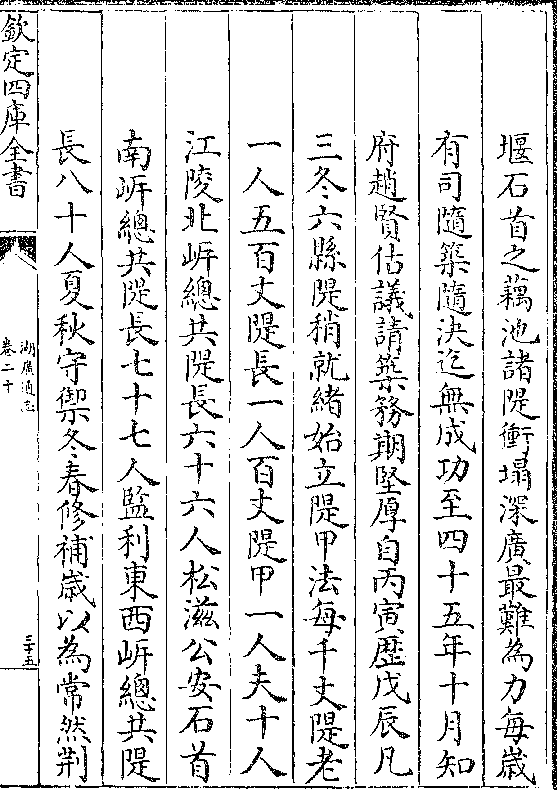 堰石首之藕池諸隄衝塌深廣最難為力每歲
有司隨築隨決迄無成功至四十五年十月知
府趙賢估議請築務期堅厚自丙寅歷戊辰凡
三冬六縣隄稍就緒始立隄甲法每千丈隄老
一人五百丈隄長一人百丈隄甲一人夫十人
江陵北岍總共隄長六十六人松滋公安石首
南岍總共隄長七十七人監利東西岍總共隄
長八十人夏秋守禦冬春修補歲以為常然荆
欽定四庫全書
湖廣通志
卷二十
三十五